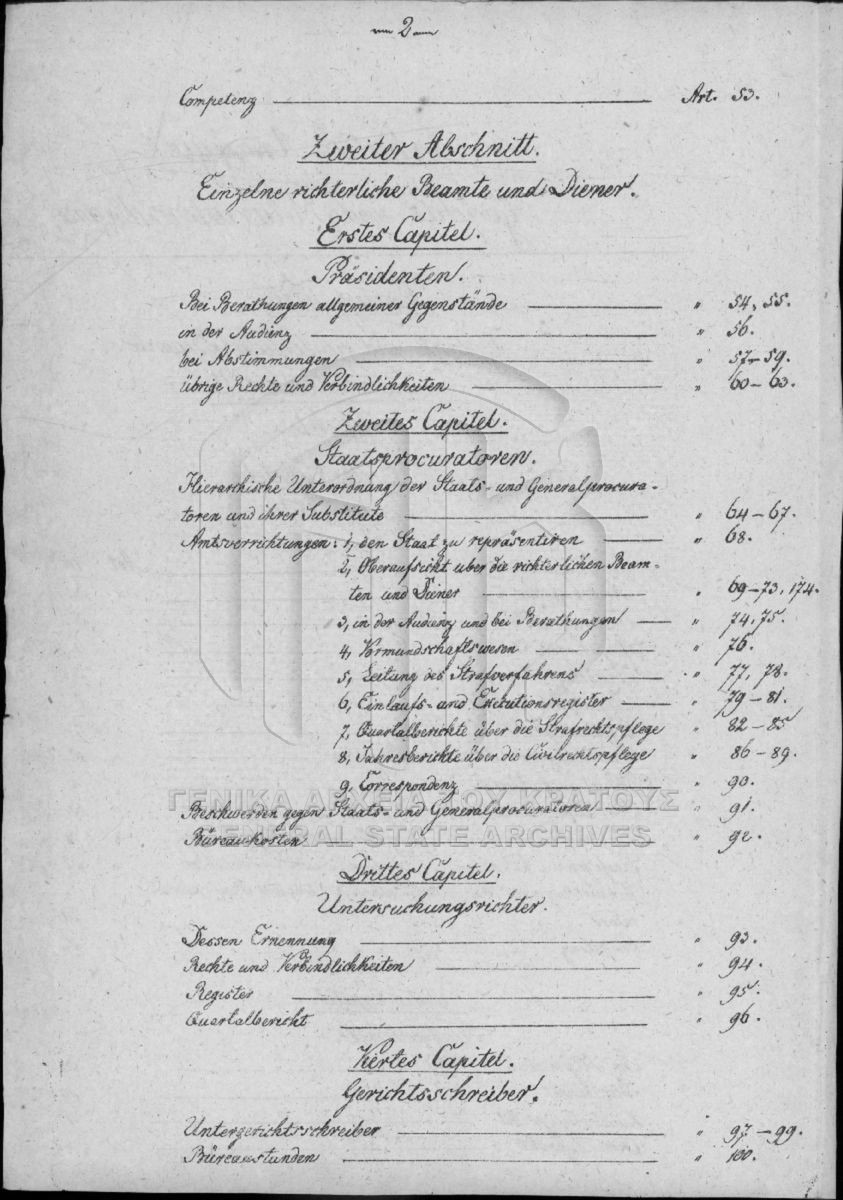 2
Competenz Art. 53.
Zweiter Abschnitt.
Einzelne richterliche Beamte und Diener.
Erstes Capitel.
Präsidenten.
Bei Berathungen allgemeiner Gegenstände " 54, 55.
in der Audienz " 56.
bei Abstimmungen " 57-59.
übrige Rechte und Verbindlichkeiten " 60-63.
Zweites Capitel.
Staatsprocuratoren.
Hierarchische Unterordnung der Staats- und Generalprocura-
toren und ihrer Substitute " 64-67.
Amtsverrichtungen: 1, den Staat zu repräsentiren " 68.
2, Oberaufsicht über die richterlichen Beam-
ten und Diener " 69-73, 174.
3, in der Audienz und bei Berathungen " 74, 75.
4, Vormundschaftswesen " 76.
5, Leitung des Strafverfahrens " 77, 78.
6, Einlaufs- und Executionsregister " 79-81.
7, Quartalberichte über die Strafrechtspflege " 82-85
8, Jahresberichte über die Civilrechtspflege " 86-89.
9, Correspondenz " 90.
Beschwerden gegen Staats- und Generalprocuratoren " 91.
Büreaukosten " 92.
ΓΕΝΙΚΑ ΑΡΧΕΙΑ ΤΟΥ ΚΡΑΤΟΥΣ
GENERAL STATE ARCHIVES
Drittes Capitel.
Untersuchungsrichter.
Dessen Ernennung " 93.
Rechte und Verbindlichkeiten " 94.
Register " 95.
Quartalbericht " 96.
Viertes Capitel.
Gerichtsschreiber.
Untergerichtsschreiber " 97-99.
Büreaustunden " 100.